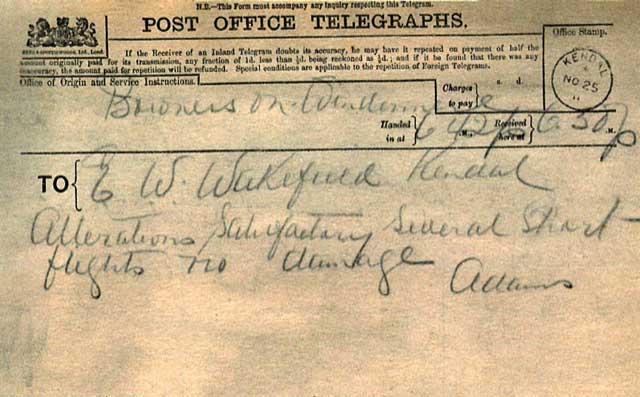 N.B.—This Form must accompany any inquiry respecting this Telegram.
POST OFFICE TELEGRAPHS.
If the Receiver of an Inland Telegram doubts its accuracy, he may have it repeated on payment of half the
amount originally paid for its transmission, any fraction of 1d. less than ½d. being reckoned as ½d.; and if it be found that there was any
inaccuracy, the amount paid for repetition will be refunded. Special conditions are applicable to the repetition of Foreign Telegrams.
Office of Origin and Service Instructions.
Office Stamp.
KENDAL
NO 25
11
Charges to pay
s. d.
Bowness on Windermere
Handed in at 6.42p M.,
Received here at 6.50p M.
TO E. W. Wakefield Kendal
Alterations Satisfactory Several Short
flights no damage Adams